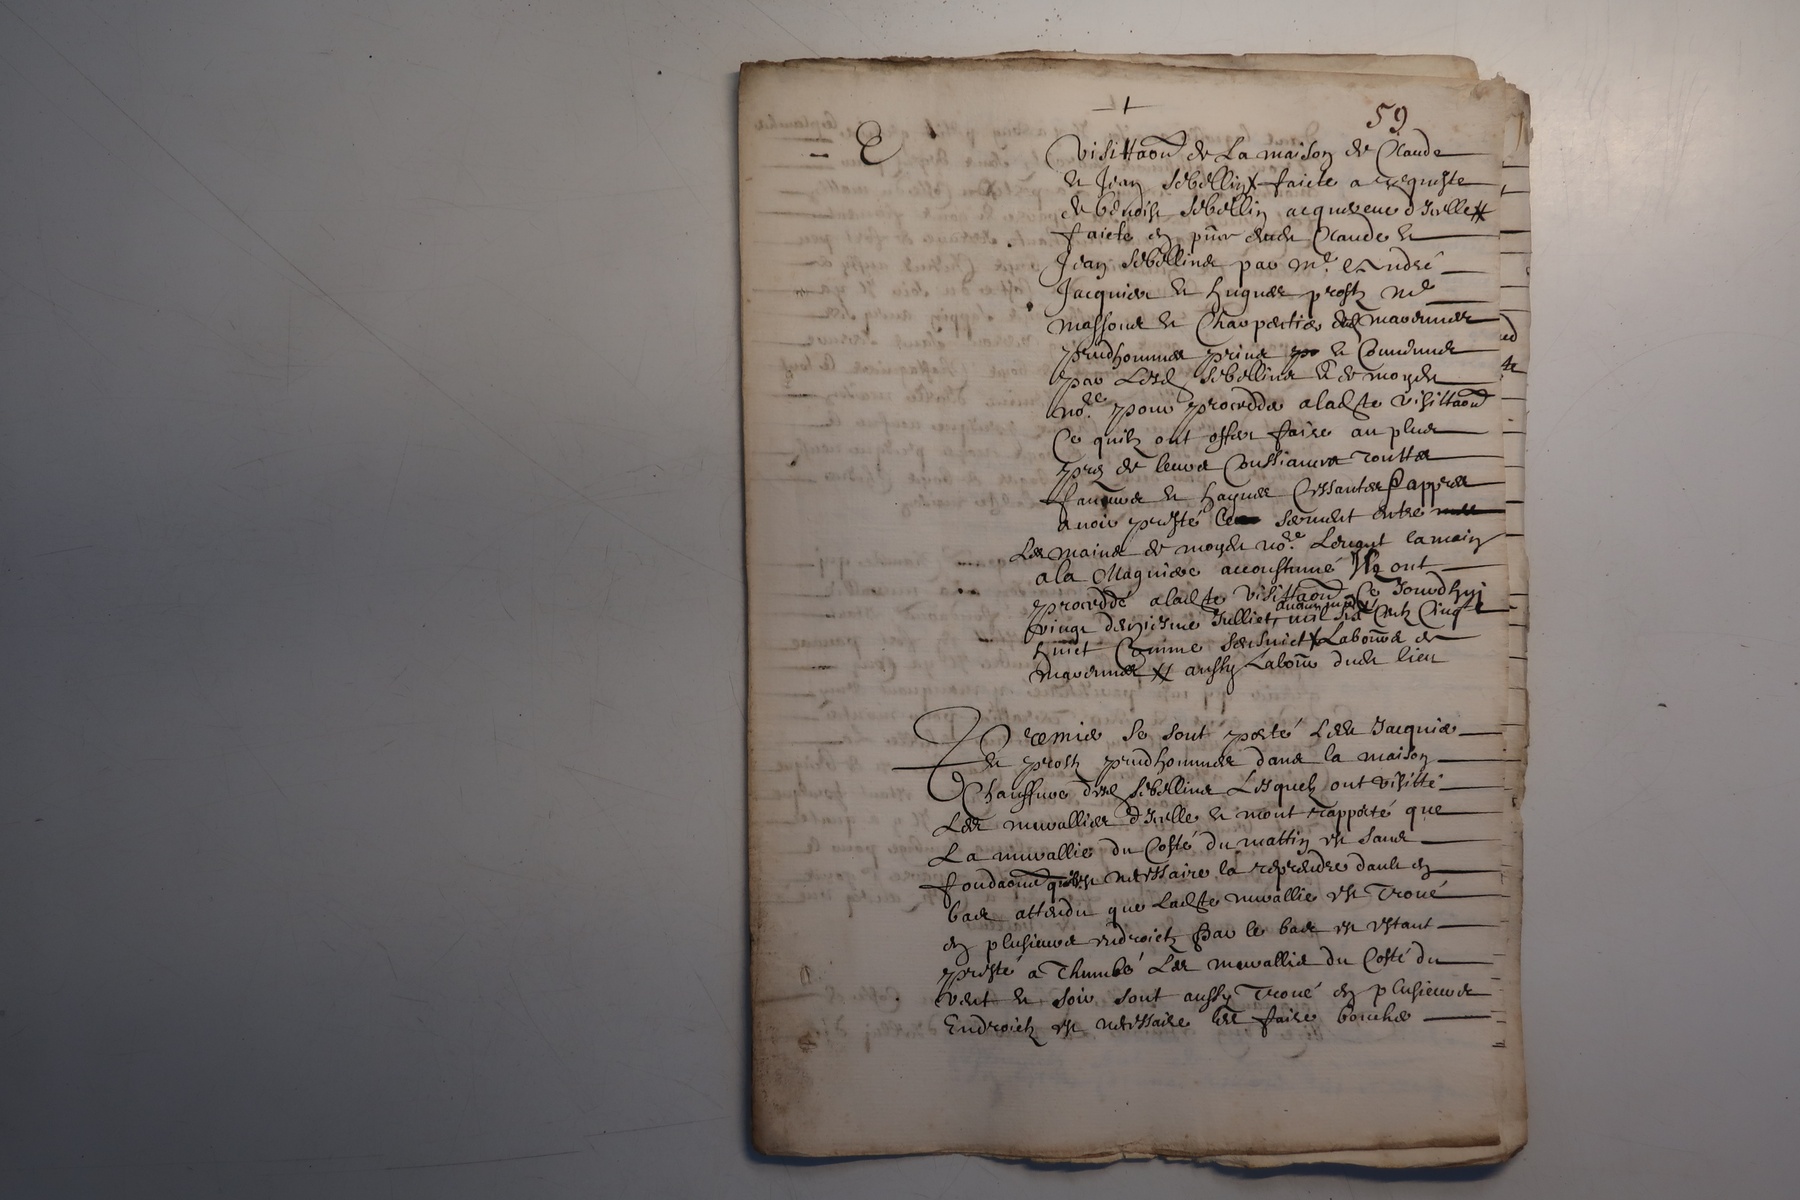 59
E
Visittaon̄ de La maison de Claude
et Jean Sebellin faicte a requeste
de benoist Sebellin acquereur d'Icelle
faicte en pn̄ce dud Claude et
Jean Sebellins par me André
Jacquier et hugues prost me
massons et Charpentier mavennes
prudhommes prins et Convenus
par Lesd Sebellins et de moyd
nore pour procedder a ladte visittaon̄
Ce quilz ont offer faire au plus
pres de leurs Conssiances toutte
faveurs et haynes Cessantes appres
avoir presté serment entre
Les mains de moyd nore Levant la main
a la Maniere accoustumé Ilz ont
proceddé a ladte visittaon Ce Jourdhuy
vingt Juilliet mil six Centz Cinqte
huict Comme sensuict Labour̄ de
mavennes aussy Labour̄ dud lieu
Premier se sont porté Lesd Jacquier
et prost prudhommes dans la maison
Chauffure desd Sebellins Lesquelz ont visitté
Les murallies d'Icelle et mont rapporté que
La murallie du Costé du mattin est sans
fondaon̄ necessaire la reprendre dault en
bas attendu que Ladte murallie est Troué
en plusieurs endroictz Par le bas et estant
presté a Thumbé Les murallie du Costé du
vent et soir sont aussy Troué en plusieurs
Endroictz est necessaire les faire bouche